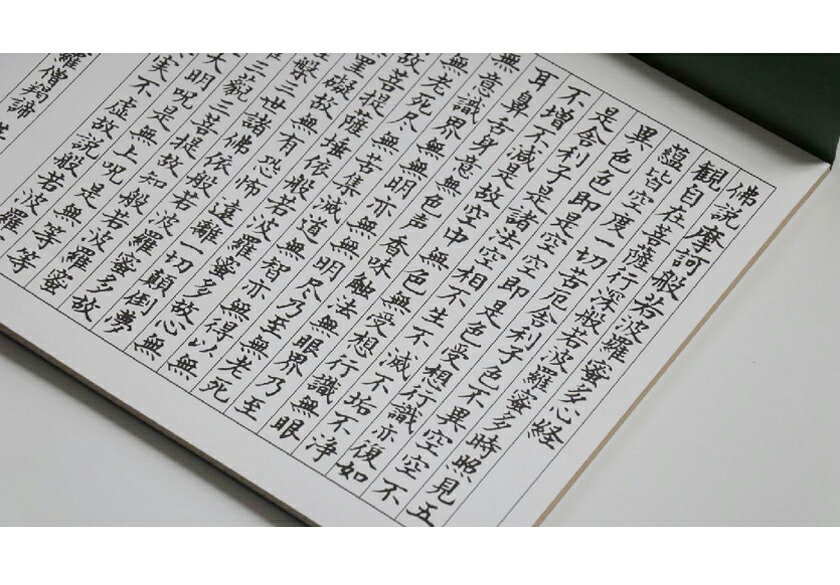 佛説摩訶般若波羅蜜多心経
観自在菩薩行深般若波羅蜜多時照見五
蘊皆空度一切苦厄舎利子色不異空空不
異色色即是空空即是色受想行識亦復如
是舎利子是諸法空相不生不滅不垢不浄
不増不減是故空中無色無受想行識無眼
耳鼻舌身意無色声香味触法無眼界乃至
無意識界無無明亦無無明尽乃至無老死
無老死尽無苦集滅道無智亦無得以無
故菩提薩埵依般若波羅蜜多故心無
罣礙故無有恐怖遠離一切顛倒夢
槃三世諸佛依般若波羅蜜多故
藐三菩提故知般若波羅蜜
大明呪是無上呪是無等等
実不虚故説般若波羅蜜
羅僧羯諦